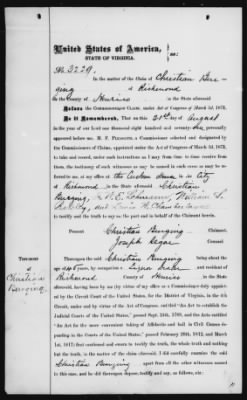 United States of America,
STATE OF VIRGINIA. } ss:
No. 3229.
In the matter of the Claim of Christian Burg-
ing of Richmond
in the County of Henrico in the State aforesaid
Before the COMMISSIONERS OF CLAIMS, under Act of Congress of March 3d, 1871.
Be it Remembered, That on this 21st day of August
in the year of our Lord one thousand eight hundred and seventy, personally
appeared before me, M. F. PLEASANTS, a Commissioner selected and designated by
the Commissioners of Claims, appointed under Act of Congress of March 3d, 1871,
to take and record, under such instructions as I may from time to time receive from
them, the testimony of such witnesses as may be caused in such cases as may be re-
ferred to me, at my office at the Custom House in the City
of Richmond in the State aforesaid Christian
Burging, William S.
and
to testify and to speak the truth on the part and in behalf of the Claimant herein.
Present Christian Burging Claimant.
Joseph Segar Counsel.
Thereupon the said Christian Burging being
by occupation a Liquor dealer and resident of
Richmond County of Henrico in the State
aforesaid, having been by me (by virtue of my office as a Commissioner duly appoint-
ed by the Circuit Court of the United States, for the District of Virginia, in the 4th
Circuit, under and by virtue of the Act of Congress, entitled "An Act to establish the
Judicial Courts of the United States," passed Sept. 24th, 1789, and the Acts entitled
"An Act for the more convenient taking of Affidavits and bail in Civil Causes de-
pending in the Courts of the United States," passed February 20th, 1812, and March
1st, 1817) first cautioned and sworn to testify the truth, the whole truth and nothing
but the truth, in the matter of the claim aforesaid, I did carefully examine the said
Christian Burging apart from all the other witnesses named
to this case, and he did thereupon depose, testify and say, as follows, viz:
TESTIMONY
of
Christian
Burging